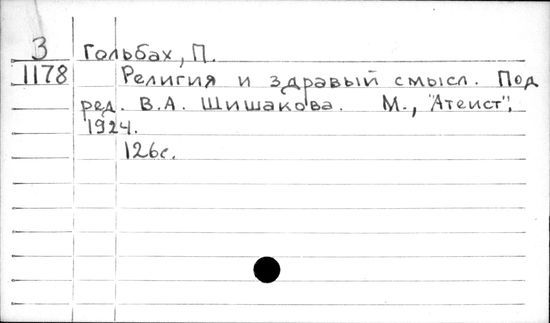 З
1178
Гольбах, П.
Религия и здравый смысл. Под
ред. В.А. Шишакова. М., "Атеист",
1924.
126с.